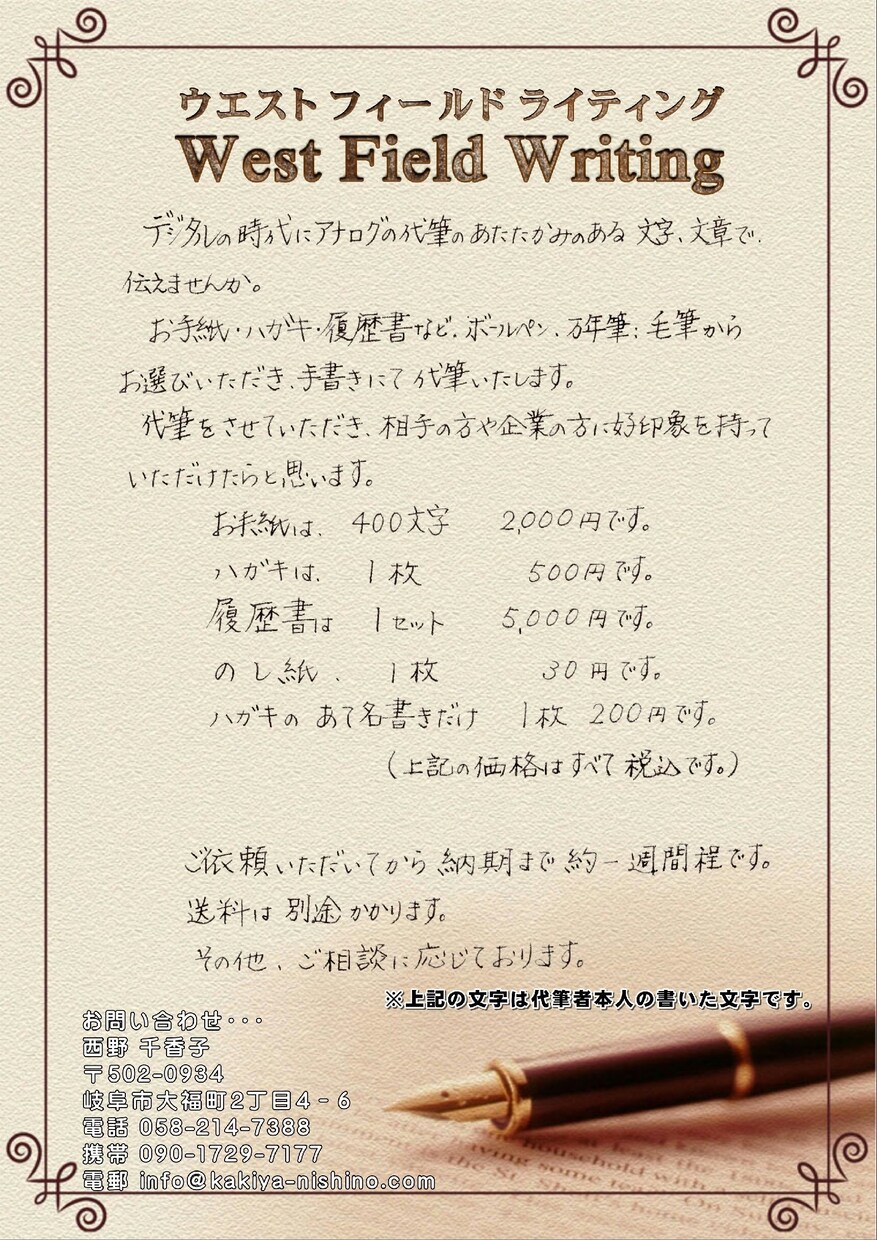 ウエスト フィールド ライティング
West Field Writing
デジタルの時代にアナログの代筆のあたたかみのある 文字、文章で、
伝えませんか。
お手紙・ハガキ・履歴書など、ボールペン、万年筆、毛筆から
お選びいただき、手書きにて代筆いたします。
代筆をさせていただき、相手の方や企業の方に好印象を持って
いただけたらと思います。
お手紙は、 400文字 2,000円です。
ハガキは、 1枚 500円です。
履歴書は 1セット 5,000円です。
のし紙、 1枚 30円です。
ハガキの あて名書きだけ 1枚 200円です。
(上記の価格はすべて税込です。)
ご依頼いただいてから納期まで約一週間程です。
送料は別途かかります。
その他、ご相談に応じております。
※上記の文字は代筆者本人の書いた文字です。
お問い合わせ・・・
西野 千香子
〒502-0934
岐阜市大福町2丁目4-6
電話 058-214-7388
携帯 090-1729-7177
電郵 info@kakiya-nishino.com
household